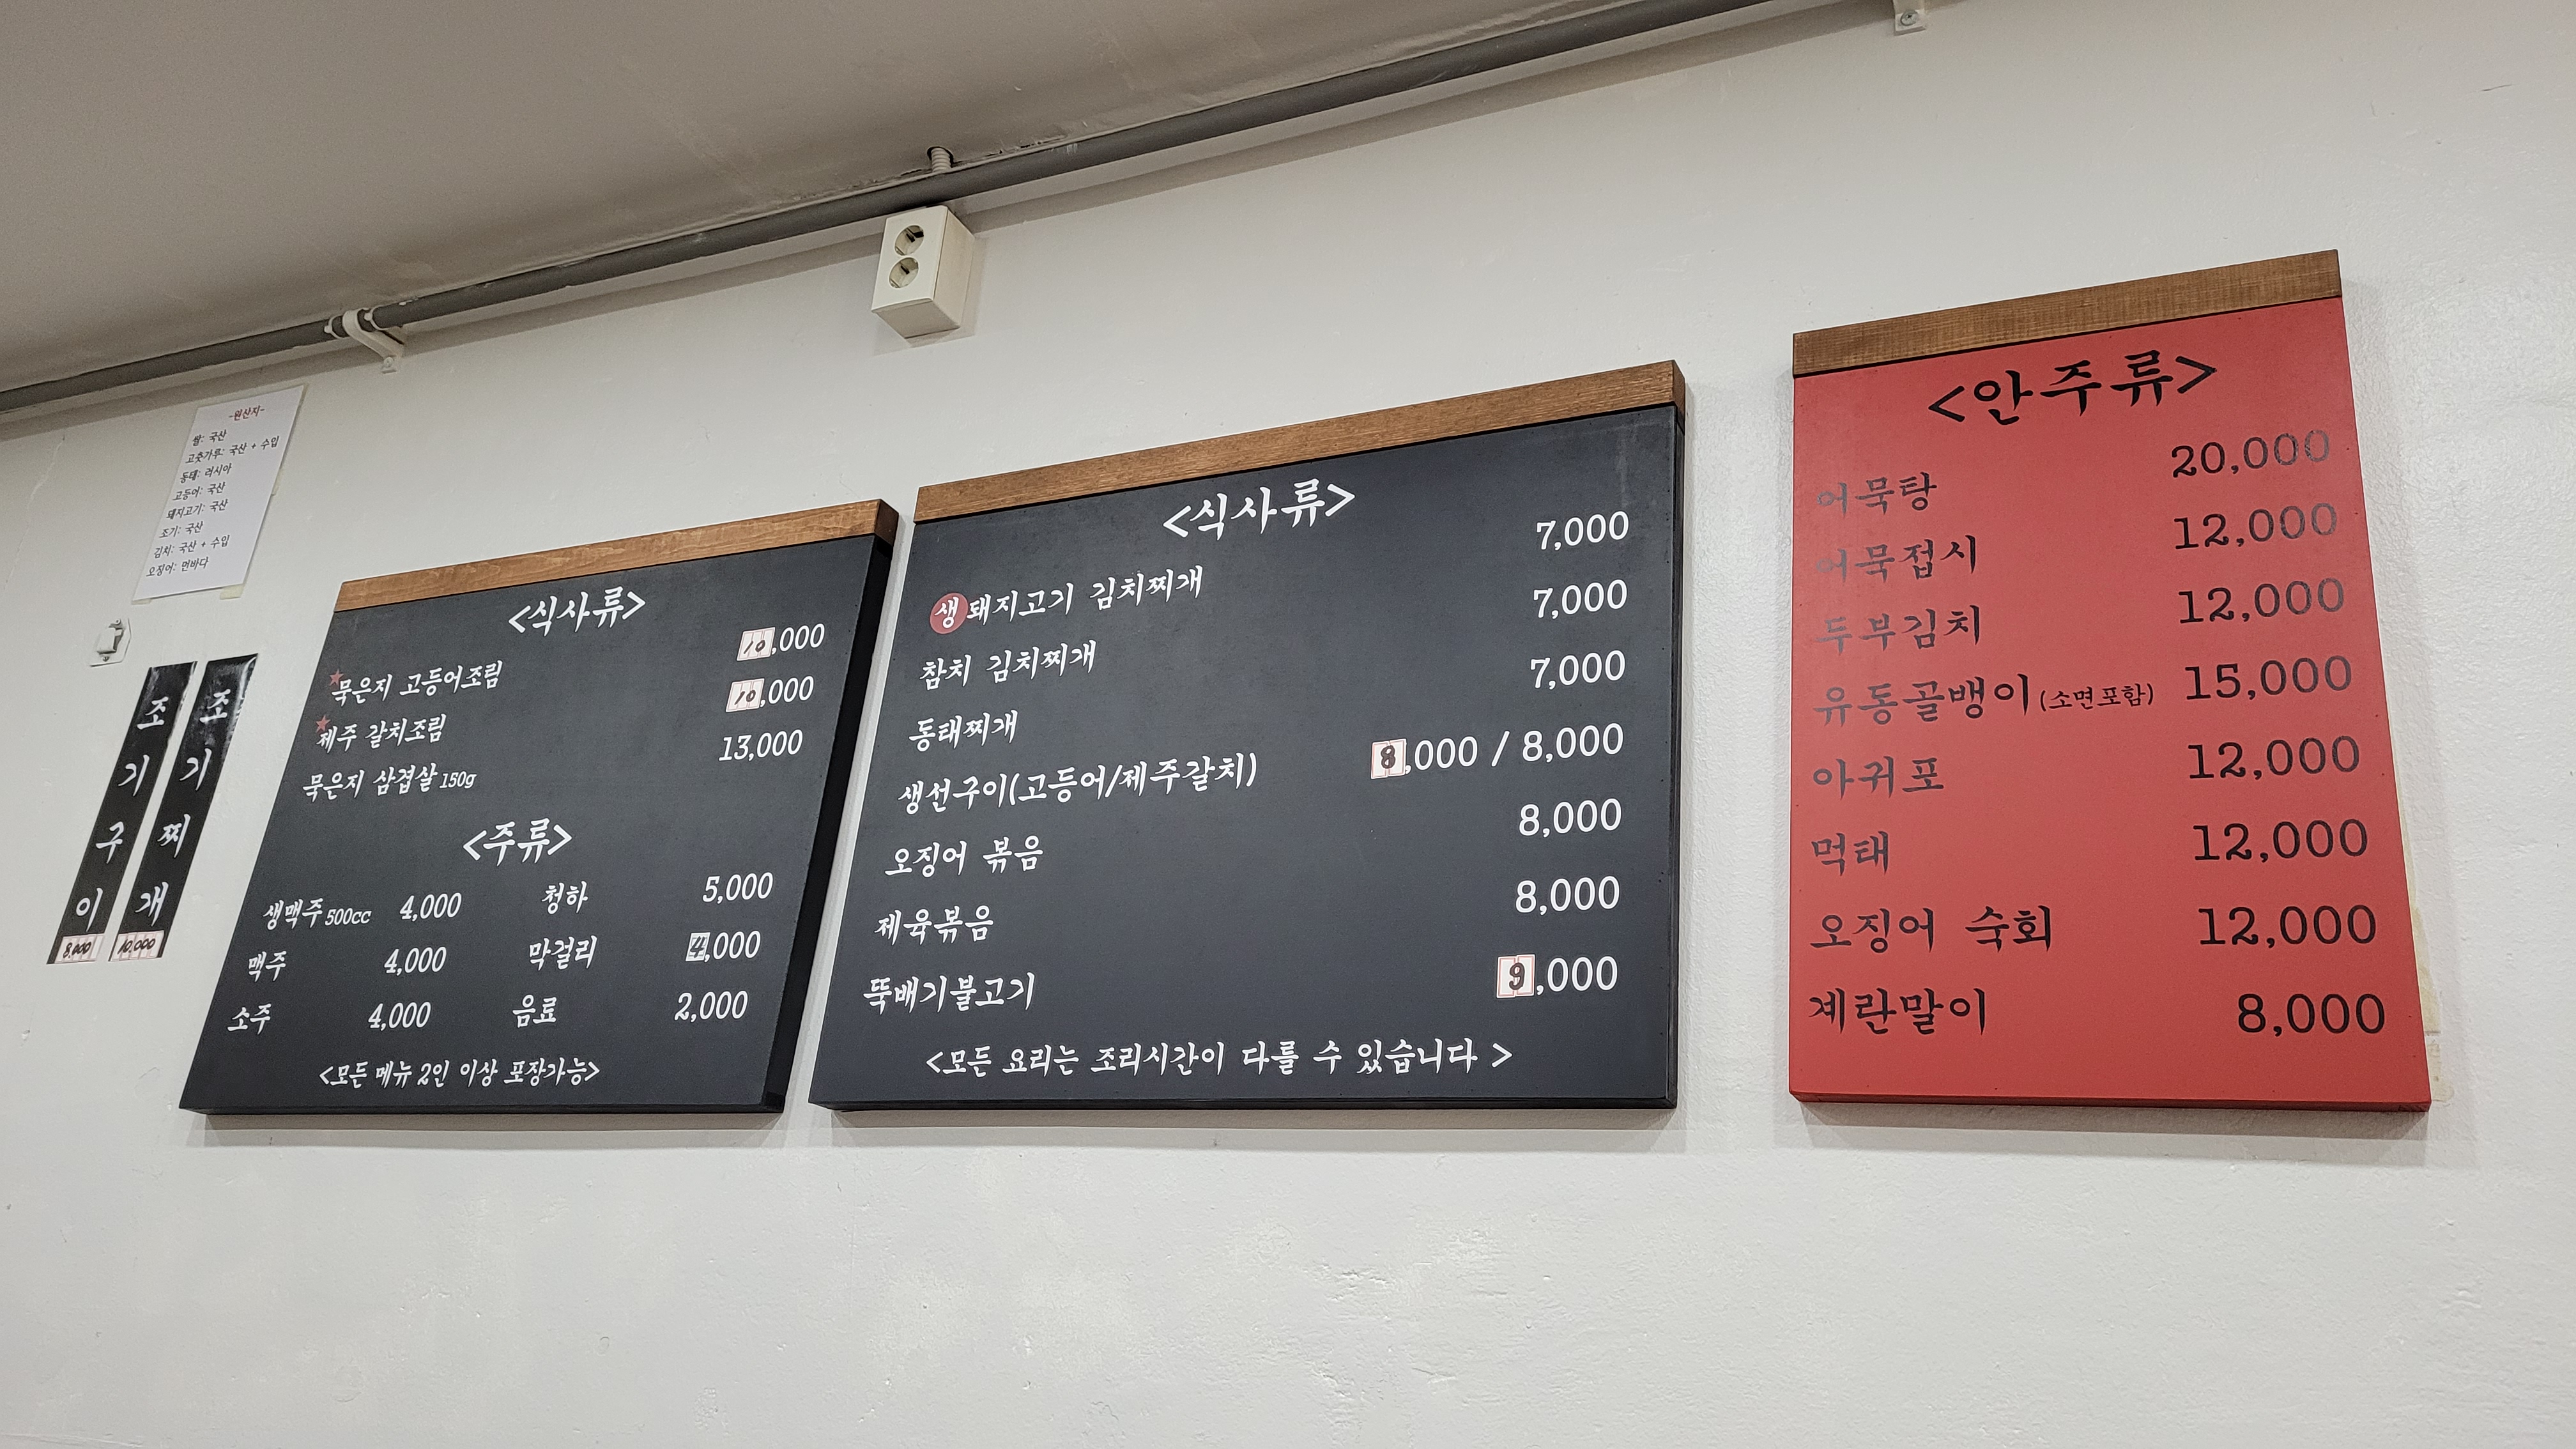 -원산지-
쌀: 국산
고춧가루: 국산 + 수입
동태: 러시아
고등어: 국산
돼지고기: 국산
조기: 국산
김치: 국산 + 수입
오징어: 먼바다
조기구이
8,000
조기찌개
10,000
<식사류>
묵은지 고등어조림 10,000
제주 갈치조림 10,000
묵은지 삼겹살 150g 13,000
<주류>
생맥주 500cc 4,000 청하 5,000
맥주 4,000 막걸리 4,000
소주 4,000 음료 2,000
<모든 메뉴 2인 이상 포장가능>
<식사류>
생돼지고기 김치찌개 7,000
참치 김치찌개 7,000
동태찌개 7,000
생선구이(고등어/제주갈치) 8,000 / 8,000
오징어 볶음 8,000
제육볶음 8,000
뚝배기불고기 9,000
<모든 요리는 조리시간이 다를 수 있습니다 >
<안주류>
어묵탕 20,000
어묵접시 12,000
두부김치 12,000
유동골뱅이(소면포함) 15,000
아귀포 12,000
먹태 12,000
오징어 숙회 12,000
계란말이 8,000